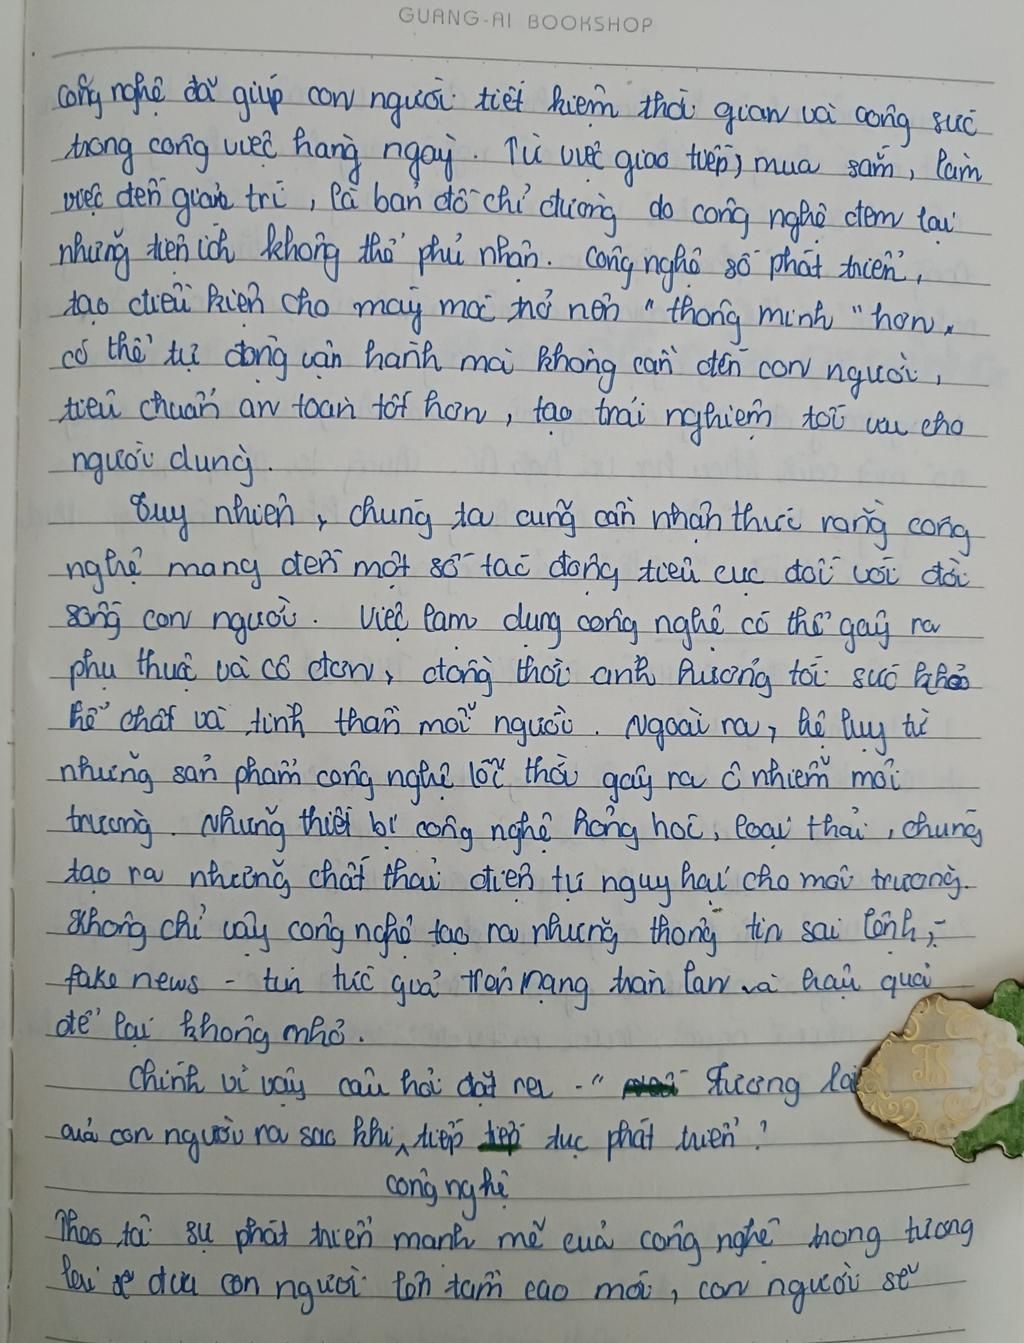 GUANG-AI BOOKSHOP
công nghệ đã giúp con người tiết kiệm thời gian và công sức
trong công việc hàng ngày. Từ việc giao tiếp, mua sắm, làm
việc đến giải trí, là bản đồ chỉ đường do công nghệ đem lại
những tiện ích không thể phủ nhận. Công nghệ số phát triển,
tạo điều kiện cho máy móc trở nên "thông minh" hơn,
có thể tự động vận hành mà không cần đến con người,
tiêu chuẩn an toàn tốt hơn, tạo trải nghiệm tối ưu cho
người dùng.
Tuy nhiên, chúng ta cũng cần nhận thức rằng công
nghệ mang đến một số tác động tiêu cực đối với đời
sống con người. Việc lạm dụng công nghệ có thể gây ra
phụ thuộc và cô đơn, đồng thời ảnh hưởng tới sức khỏe
thể chất và tinh thần mỗi người. Ngoài ra, hệ lụy từ
những sản phẩm công nghệ lỗi thời gây ra ô nhiễm môi
trường. Những thiết bị công nghệ hỏng hóc, loại thải, chúng
tạo ra những chất thải điện tử nguy hại cho môi trường.
Không chỉ vậy công nghệ tạo ra những thông tin sai lệnh,-
fake news - tin tức giả trên mạng tràn lan và hậu quả
để lại không nhỏ.
Chính vì vậy câu hỏi đặt ra - " Tương lai
của con người ra sao khi công nghệ tiếp tục phát triển?
Theo tôi sự phát triển mạnh mẽ của công nghệ trong tương
lai sẽ đưa con người lên tầm cao mới, con người sẽ